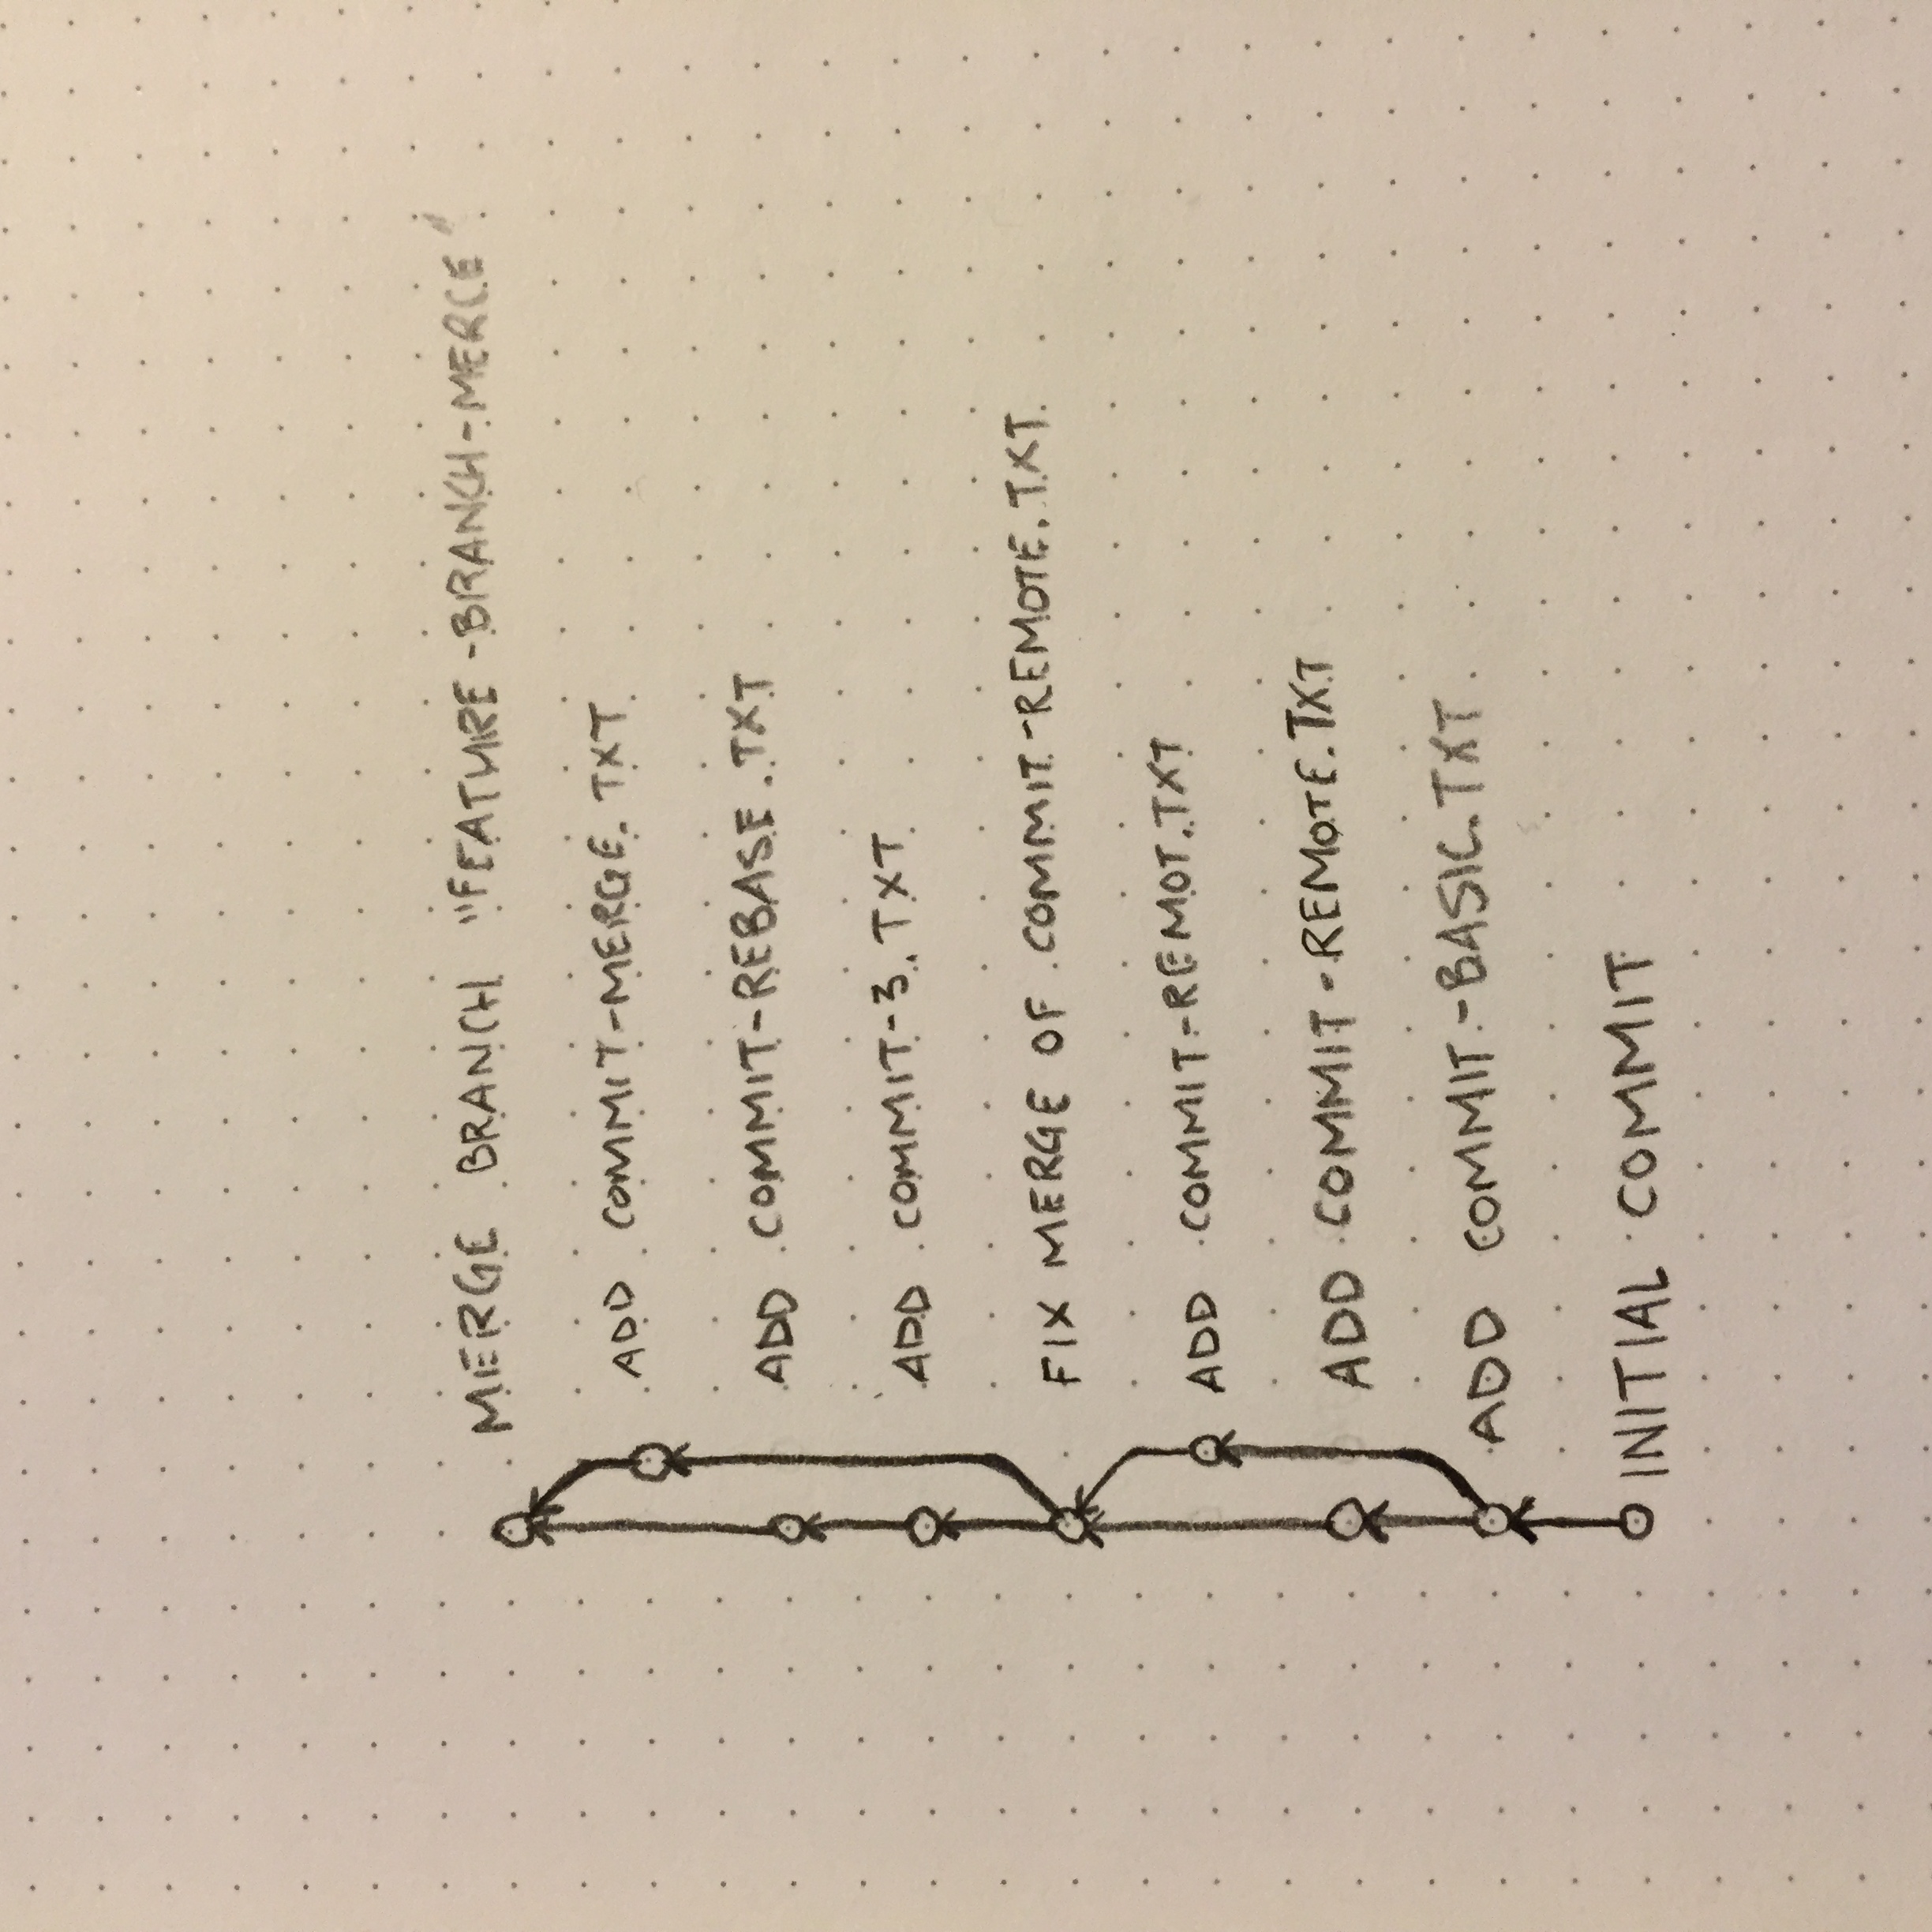 MERGE BRANCH "FEATURE-BRANCH-MERGE"
ADD COMMIT-MERGE.TXT
ADD COMMIT-REBASE.TXT
ADD COMMIT-3.TXT
FIX MERGE OF COMMIT-REMOTE.TXT
ADD COMMIT-REMOT.TXT
ADD COMMIT-REMOTE.TXT
ADD COMMIT-BASIC.TXT
INITIAL COMMIT